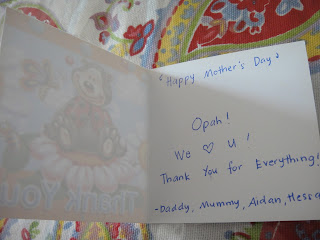 "Happy Mother's Day"
Opah!
We ♡ U!
Thank You for Everything!
-Daddy, Mummy, Aidan,
Thank You